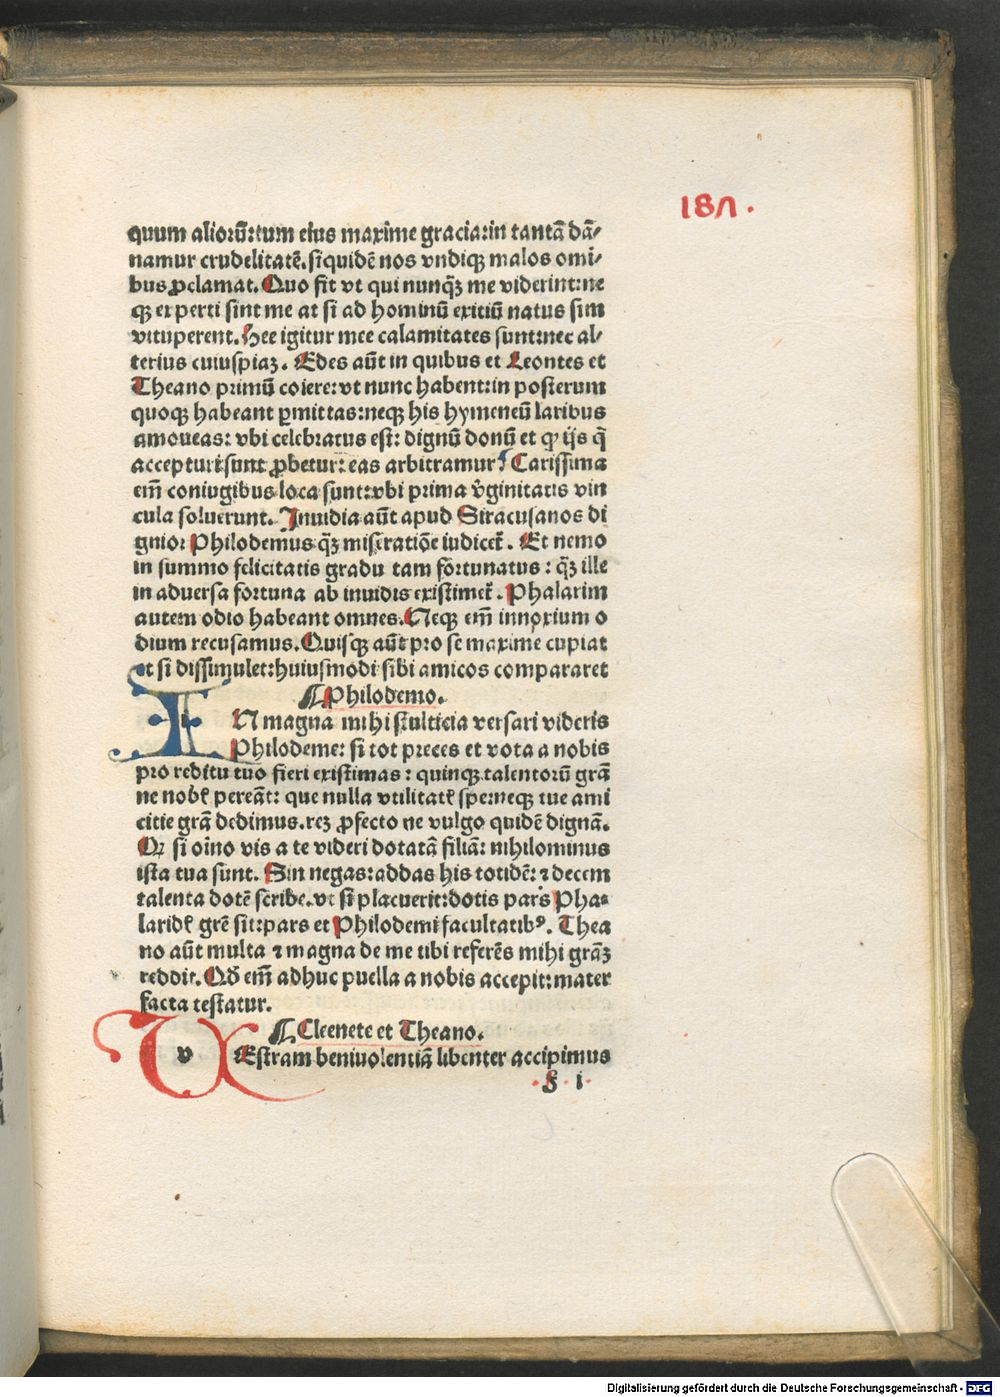 187.
quum alioꝝ̄:tum eius maxime gracia:in tantā dā⸗
namur crudelitatē.siquidē nos vndiqꝫ malos omi⸗
bus ꝓclamat.Quo fit vt qui nunq̄ꝫ me viderint:ne
qꝫ experti sint me at si ad hominū exitiū natus sim
vituperent.Hee igitur mee calamitates sunt:nec al⸗
terius cuiuspiaꝫ. Edes aūt in quibus et Leontes et
Theano primū coiere:vt nunc habent:in posterum
quoqꝫ habeant ꝑmittas:neqꝫ his hymeneū laribus
amoueas: vbi celebratus est: dignū donū et ꝙ ijs q̄
accepturi sunt ꝓbetur: eas arbitramur? Carissima
em̄ coniugibus loca sunt:vbi prima v̄ginitatis vin
cula soluerunt. Inuidia aūt apud Siracusanos di
gnior Philodemus q̄ꝫ miseratiōe iudicet̄. Et nemo
in summo felicitatis gradu tam fortunatus: q̄ꝫ ille
in aduersa fortuna ab inuidis existimet̄. Phalarim
autem odio habeant omnes.Neqꝫ em̄ innoxium o
dium recusamus.Quisqꝫ aūt pro se maxime cupiat
et si dissimulet:huiusmodi sibi amicos compararet
¶Philodemo.
IN magna mihi stulticia versari videris
Philodeme: si tot preces et vota a nobis
pro reditu tuo fieri existimas: quinqꝫ talentorū grā
ne nobꝭ pereāt: que nulla vtilitatꝭ spe:neqꝫ tue ami
citie grā dedimus.reꝫ ꝓfecto ne vulgo quidē dignā.
Qꝛ si oīno vis a te videri dotatā filiā: nihilominus
ista tua sunt. Sin negas:addas his totidē: ⁊ decem
talenta dotē scribe.vt si placuerit:dotis pars Pha⸗
laridꝭ grē sit:pars et Philodemi facultatibꝰ. Thea
no aūt multa ⁊ magna de me tibi referēs mihi grāꝫ
reddit. Qđ em̄ adhuc puella a nobis accepit: mater
facta testatur.
¶Cleenete et Theano.
vEstram beniuolentiā libenter accipimus
f i
Digitalisierung gefördert durch die Deutsche Forschungsgemeinschaft - DFG